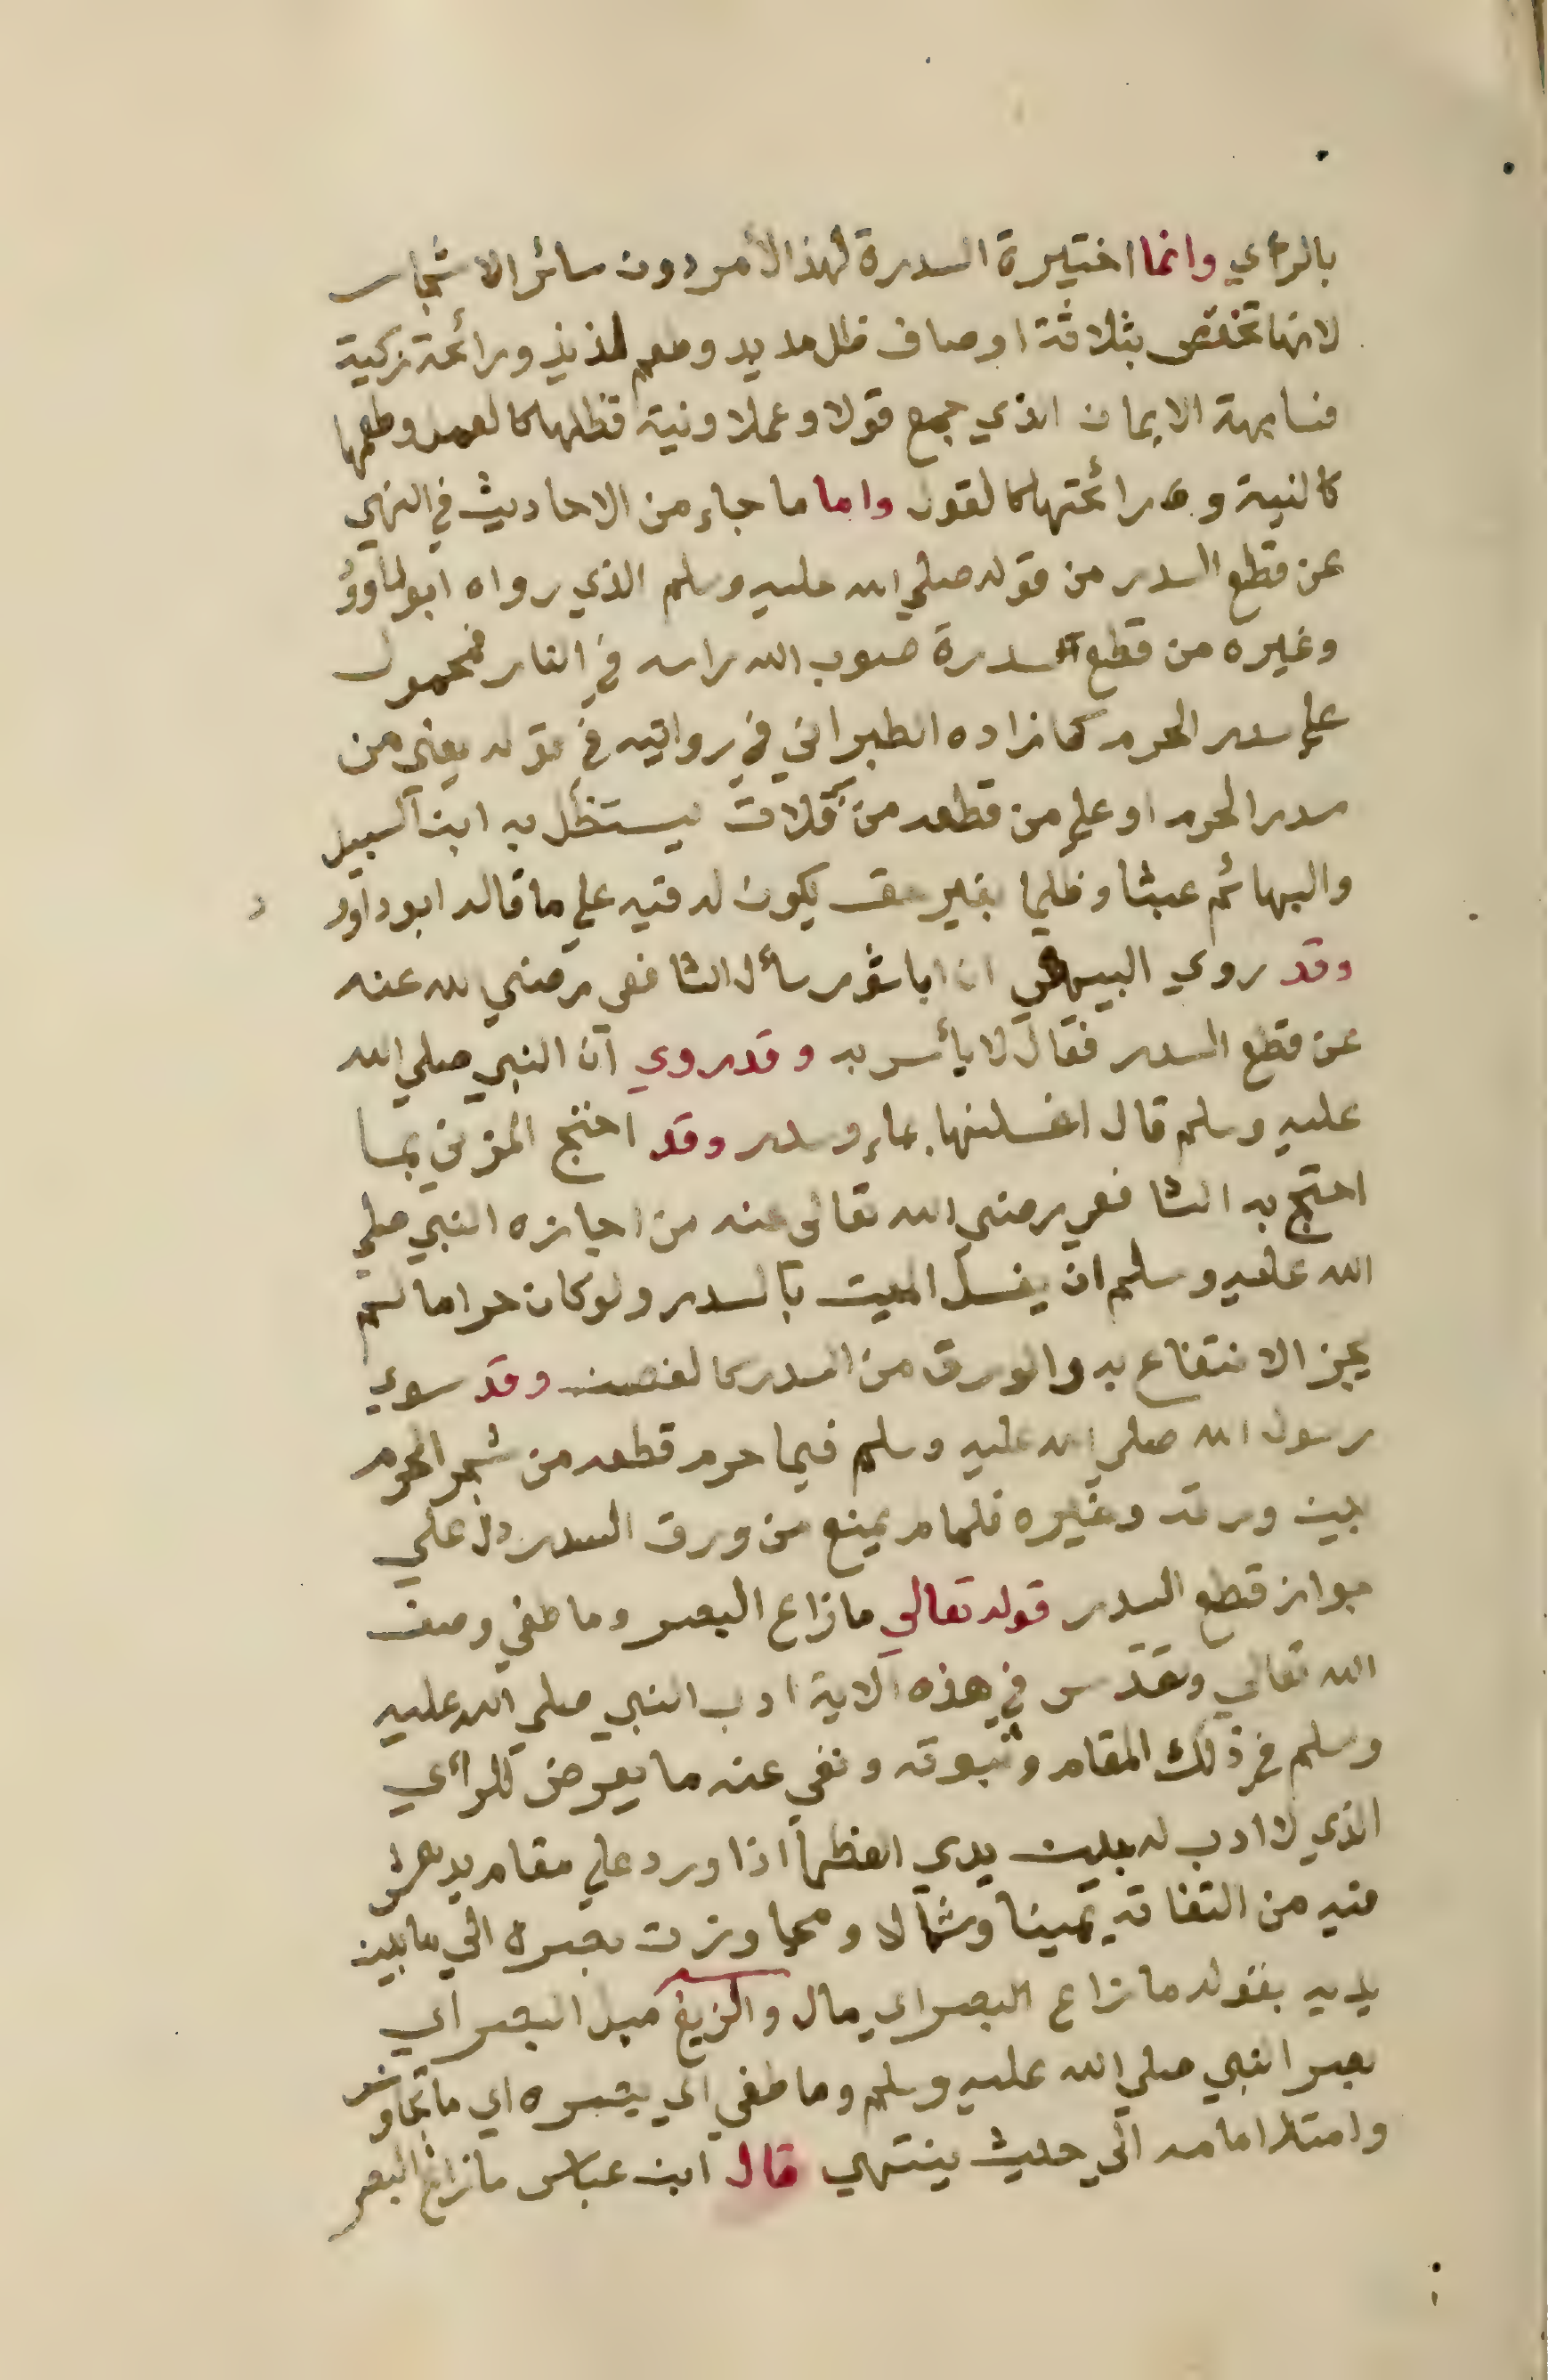 بالرأي وانما اختيرة السدرة لهذا الأمر دون سائر الاشجار
لانها تختص بثلاثة اوصاف ظل مديد وطعم لذيذ ورائحة زكية
فشابهة الايمان الذي جمع قولا وعملا ونية فظلها كالعمل وطعمها
كالنية ورائحتها كالقول واما ما جاء من الاحاديث في النهي
عن قطع السدر من قوله صلي الله عليه وسلم الذي رواه ابو داوؤد
وغيره من قطع سدرة صوب الله راسه في النار فمحمول
علي سدر الحرم كما زاده الطبراني في رواتيه في قوله يعني من
سدر الحرم او علي من قطعه من فلات يستظل به ابن السبيل
والبهائم عبثا وظلما بغير حق يكون له فيه علي ما قاله ابو داود
وقد روي البيهقي ان ابا ثور سأل الشافعى رضي الله عنه
عن قطع السدر فقال لا بأس به وقد روي ان النبي صلي الله
عليه وسلم قال اغسلنها بماء وسدر وقد احتج المزني بما
احتج به الشافعي رضى الله تعالى عنه من اجازه النبي صلي
الله عليه وسلم ان يغسل الميت بالسدر ولو كان حراما لم
يجز الانتفاع به والورق من السدر كالغصن وقد سوي
رسول الله صلي الله عليه وسلم فيما حرم قطعه من شجر الحرم
بين ورقه وغيره فلما لم يمنع من ورق السدر دل علي
جواز قطع السدر قوله تعالي ما زاع البصر وما طغي وصف
الله تعالي وتقدس في هذه الاية ادب النبي صلي الله عليه
وسلم في ذلك المقام وثبوته ونفى عنه ما يعرض للرأي
الذي لا ادب له بين يدي العظما اذا ورد علي مقام يدهش
فيه من التفاته يمينا وشمالا ومجاوزت بصره الي ما بين
يديه بقوله ما زاع البصر اي مال والزيغ ميل البصر اي
بصر النبي صلي الله عليه وسلم وما طغي اي بصره اي ما تجاوز
وامتد امامه الي حيث ينتهي قال ابن عباس ما زاغ البصر